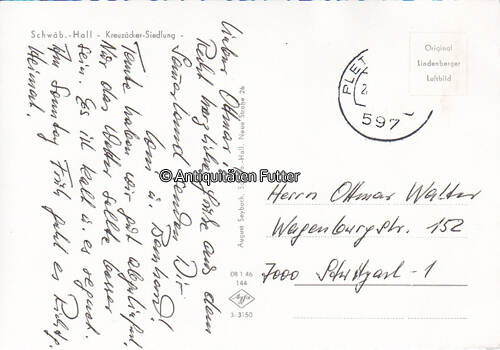 Schwäb.-Hall - Kreuzäcker-Siedlung -
Lieber Ottmar
Recht herzliche Grüße aus dem
Sauerland senden Dir
Toni u. Bernhard!
Tante haben wir gut abgeliefert.
Nur das Wetter sollte besser
sein. Es ist kalt u. es regnet.
Am Sonntag Früh geht es Richtg.
Heimat.
August Seybold, Schwäb.-Hall, Neue Straße 26
© Antiquitäten Futter
Original
Lindenberger
Luftbild
PLET
597
Herrn Ottmar Walter
Wagenburgstr. 152
7000 Stuttgart-1
08 1 46
144
Agfa
3-3150